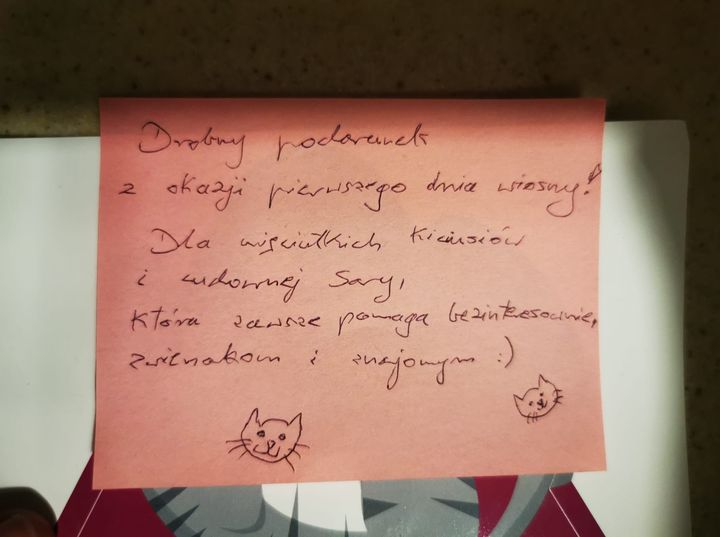 Drobny podarunek
z okazji pierwszego dnia wiosny!
Dla kiciusiów
i cudownej Sary,
która zawsze pomaga bezinteresownie,
zwierzakom i znajomym :)